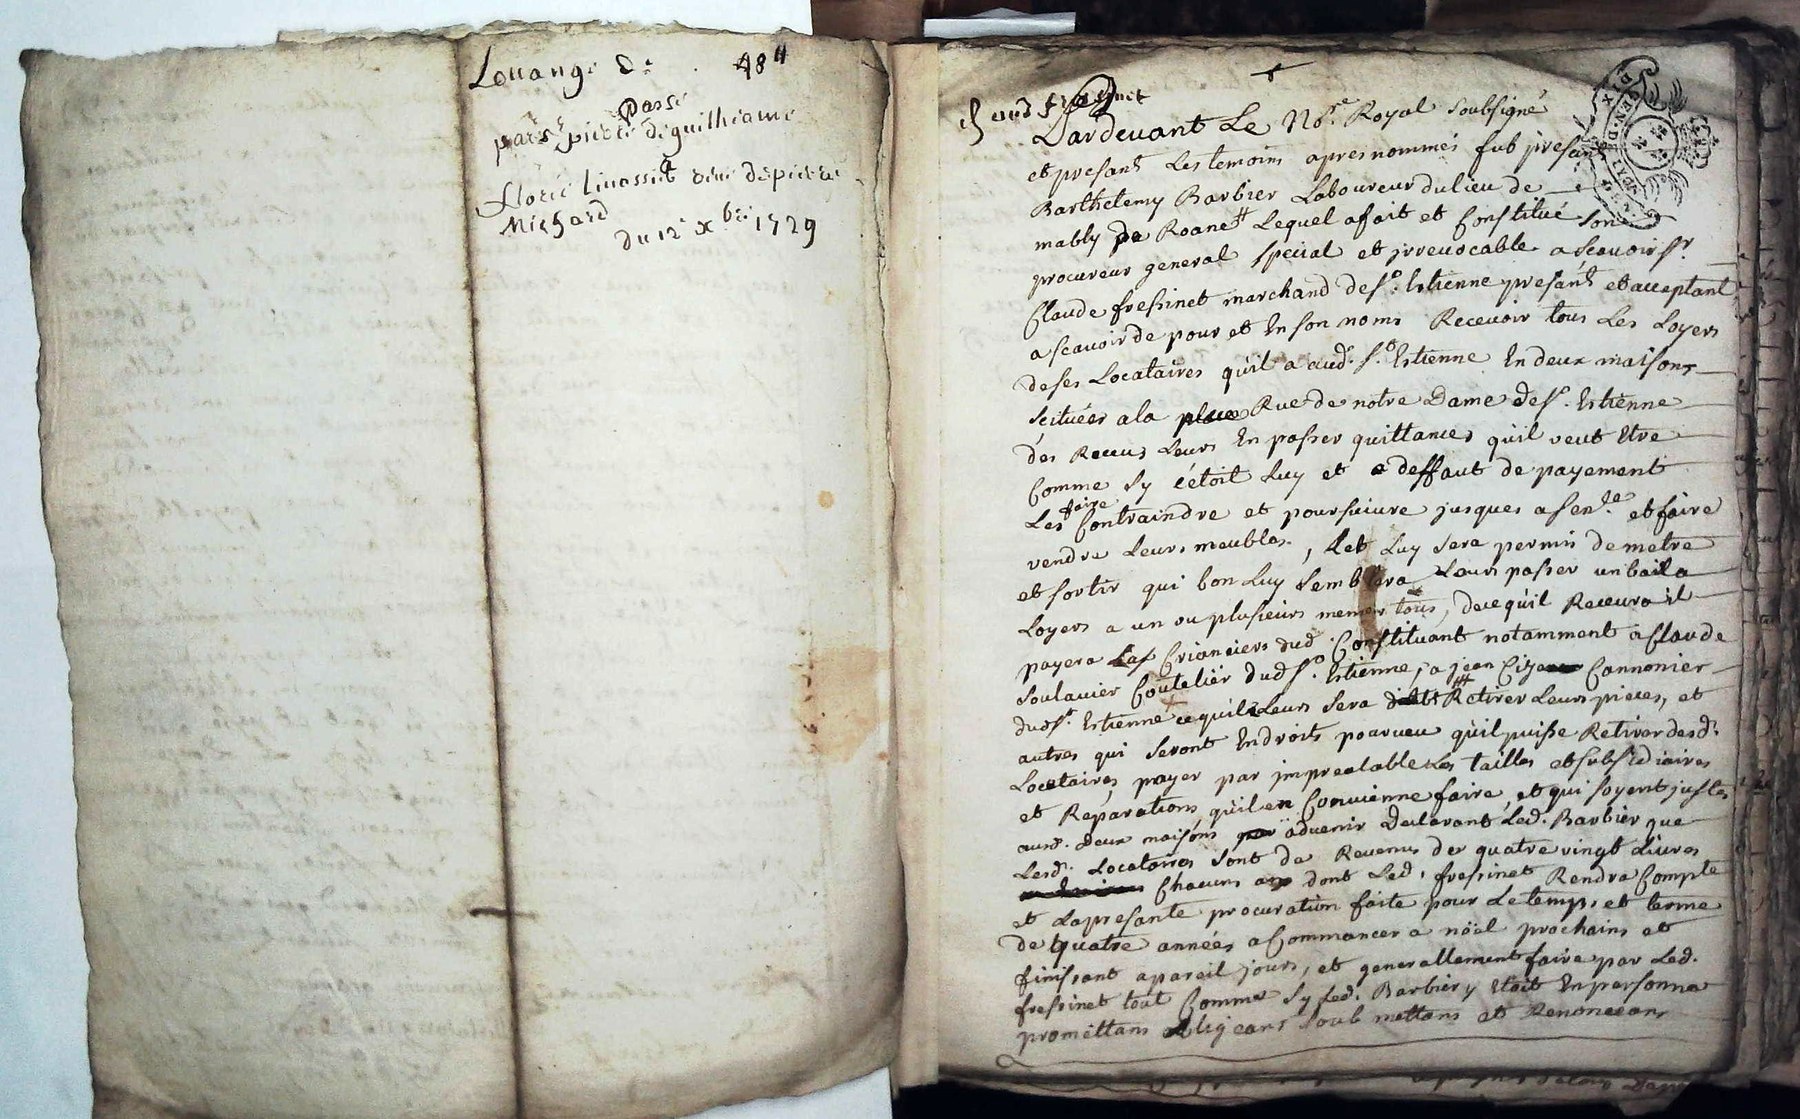 Louange de 48 ll
passé
par sr pierre deguilheaume
florie linossier veuve depierre
Michard
du 12e xbre 1729
Pardevant Le Nore Royal soubsigné
et presant Les temoins apresnommés fut presant
Barthelemy Barbier Laboureur du lieu de
mably pe Roane Lequel afait et Constitué son
procureur general special et irrevocable ascavoir sr
Claude fressinet marchand de st. Estienne presant et acceptant
ascavoir de pour et En son noms Recevoir tous Les Loyers
deses Locataires qu'il a aud. st. Estienne En deux maisons
scituées ala place Rue de notre Dame de st. Estienne
des Receus Leurs En passer quittances qu'il veut Etre
Comme sy c'étoit Luy et a deffaut de payement
Les faire Contraindre et poursuivre jusques a sence et faire
vendre Leurs meubles, Luy sera permis de metre
et sortir qui bon Luy semblera Leurs passer un bail a
Loyers a un ou plusieurs tous, de ce qu'il Recevra il
payera Les Crianciers dud. Constituant notamment a Claude
soulavier Coutelier dud st. Estienne, a jean Cannonier
dud st. Estienne ce qu'il Leurs sera Retirer Leurs pieces, et
autres qui seront En droits pourveu qu'il puisse Retirer desd.
Locataires, payer par imprealable Les tailles et subsidiaires
et Reparations qu'il en Convienne faire, et qui soyent justes
ausd. deux maisons advenir Declarant Led. Barbier que
Lesd. Locataires sont de Revenus de quatre vingt Livres
Chacuns an dont Led. fressinet Rendra Compte
et Lapresante procuration faite pour Le temps et terme
de quatre années a Commancer a nöel prochains et
finissant apareil jours, et generallement faire par Led.
fressinet tout Comme sy Led. Barbier y Etoit En personne
promettans obligeans soub mettans et Renonceans